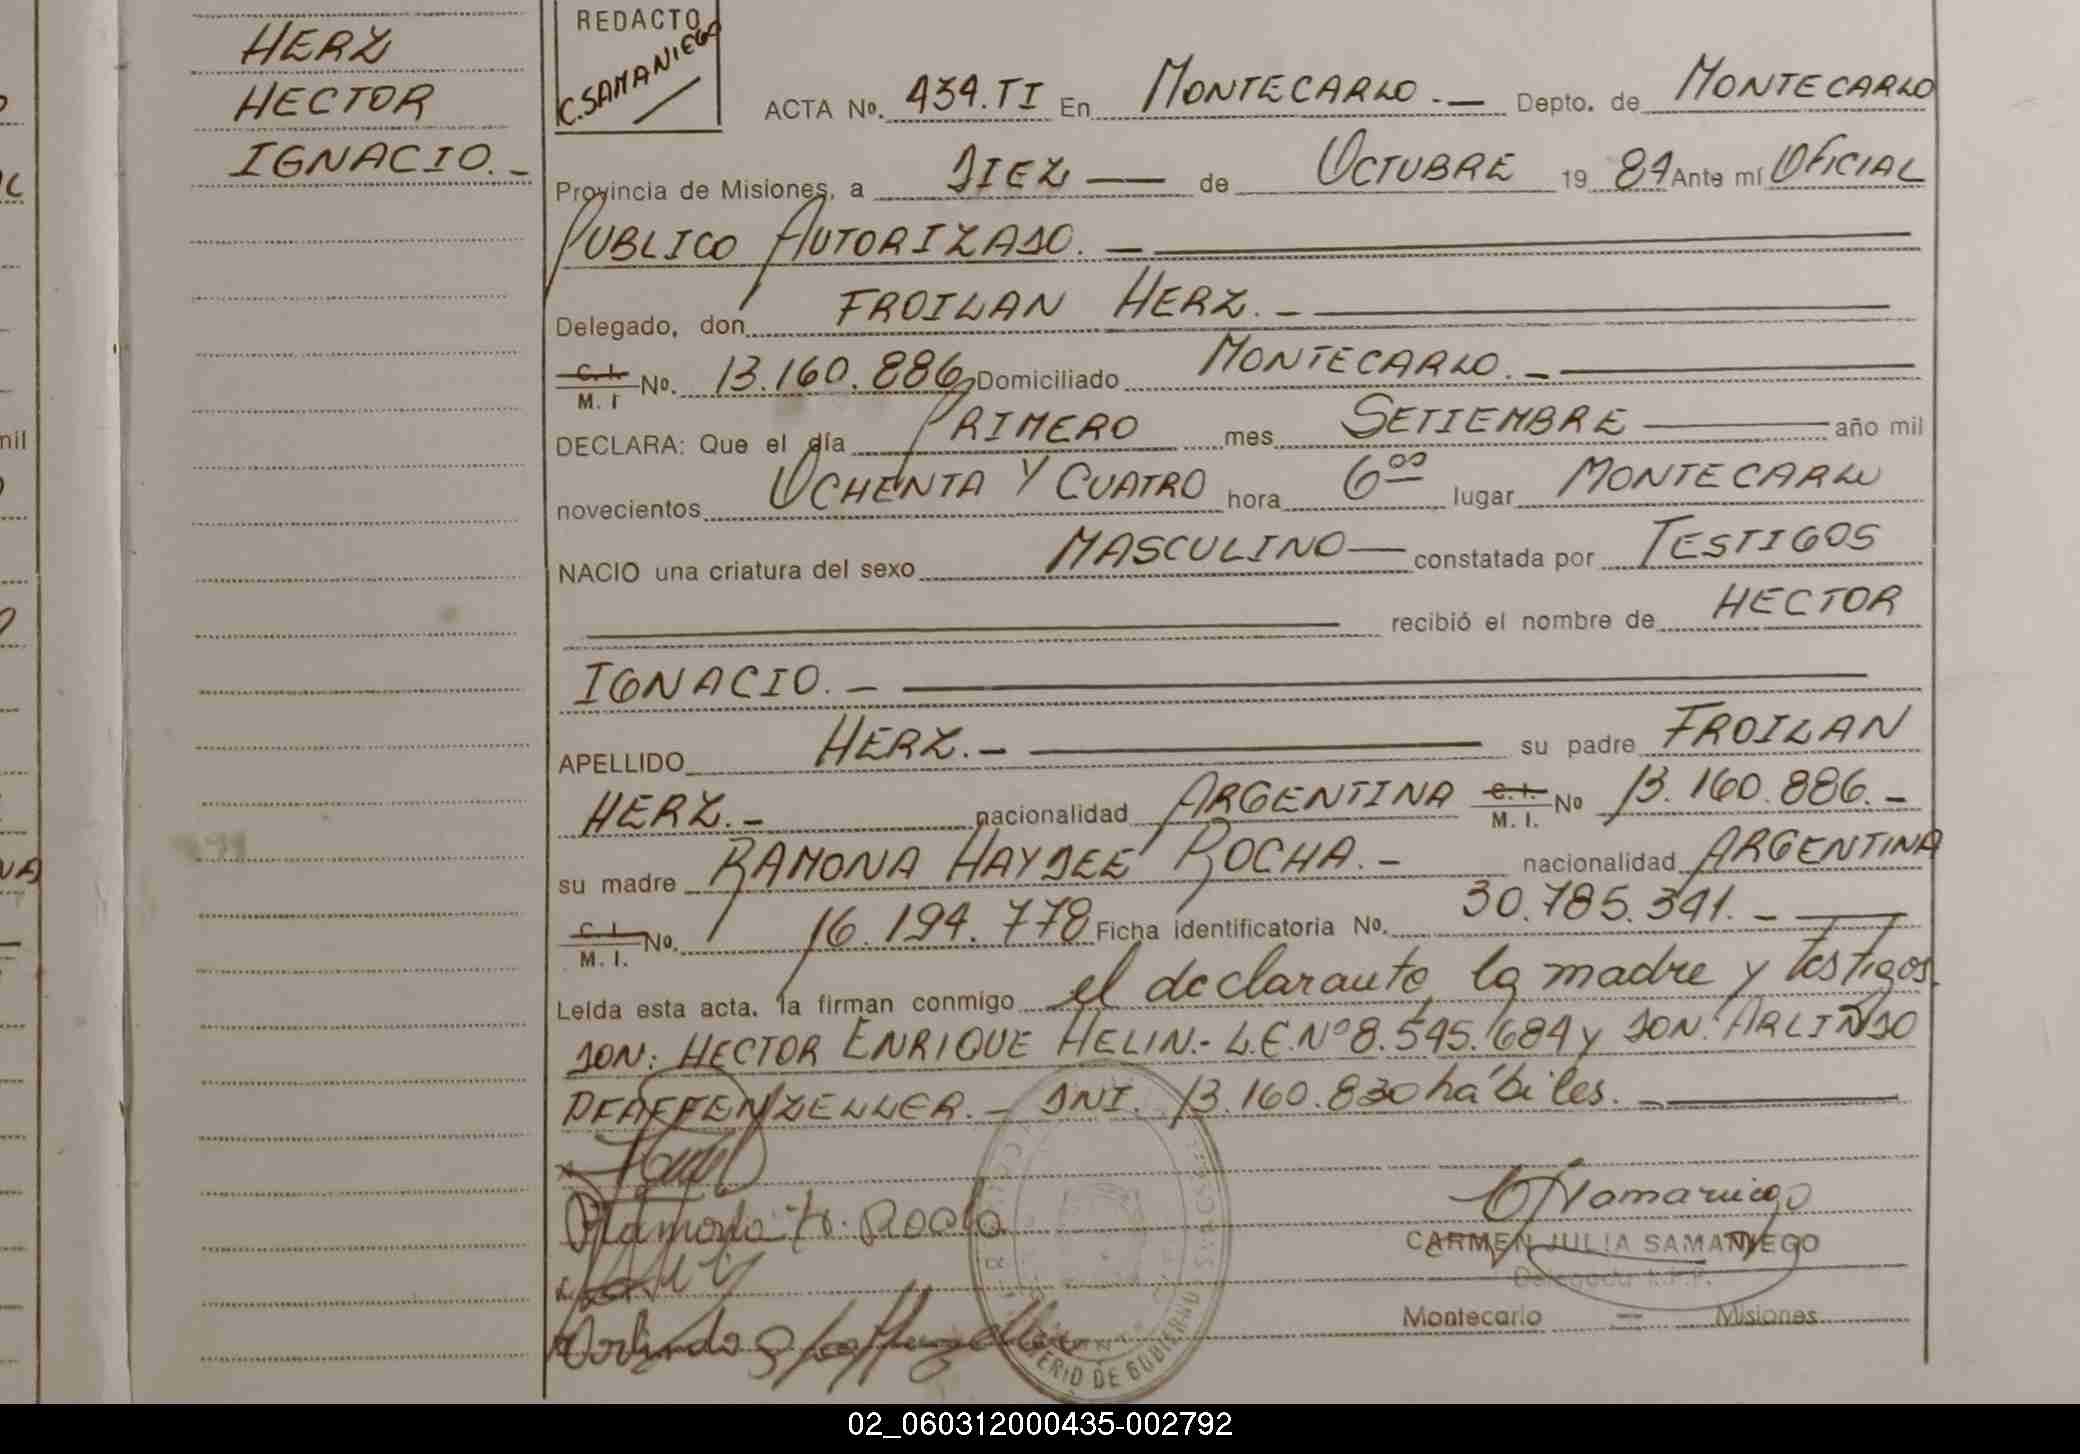 HERZ
HECTOR
IGNACIO.-
REDACTO
C. SAMANIEGO
ACTA Nº. 434.TI En MONTECARLO.- Depto. de MONTECARLO
Provincia de Misiones, a DIEZ — de OCTUBRE 19 84 Ante mí OFICIAL
PUBLICO AUTORIZADO.-
Delegado, don FROILAN HERZ.-
C. I. M. I Nº. 13.160.886 Domiciliado MONTECARLO.-
DECLARA: Que el día PRIMERO mes SETIEMBRE — año mil
novecientos OCHENTA Y CUATRO hora 6°° lugar MONTECARLO
NACIO una criatura del sexo MASCULINO — constatada por TESTIGOS
recibió el nombre de HECTOR
IGNACIO.-
APELLIDO HERZ.- su padre FROILAN
HERZ.- nacionalidad ARGENTINA C. I. M. I. Nº 13.160.886.-
su madre RAMONA HAYDEE ROCHA.- nacionalidad ARGENTINA
C. I. M. I. Nº. 16.194.778 Ficha identificatoria Nº. 30.785.341.-
Leída esta acta, la firman conmigo el declarante, la madre y testigos
DON: HECTOR ENRIQUE HELIN.- L.E.Nº 8.545.684 y DON: ARLINDO
PFAFFENZELLER.- DNI. 13.160.830 hábiles.-
Ramona H. Rocha
CARMEN JULIA SAMANIEGO
Delegada
Montecarlo — Misiones
MINISTERIO DE GOBIERNO
02_060312000435-002792